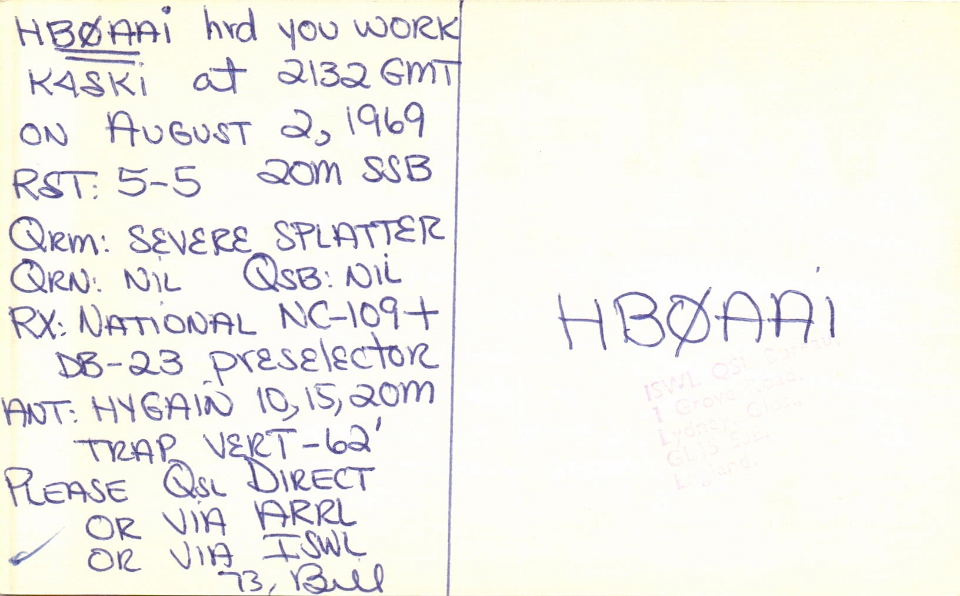 HBØAAi hrd you WORK
K4SKi at 2132 GMT
ON AUGUST 2, 1969
RST: 5-5 20m SSB
QRM: SEVERE SPLATTER
QRN: NIL QSB: NIL
RX: NATIONAL NC-109+
DB-23 preselector
ANT: HYGAIN 10, 15, 20m
TRAP VERT-62'
PLEASE QSL DIRECT
OR VIA ARRL
OR VIA ISWL
73, Bill
HBØAAi
ISWL QSL Bureau,
1 Grove Road,
Lydney, Glos.
GL15 5JE,
England.